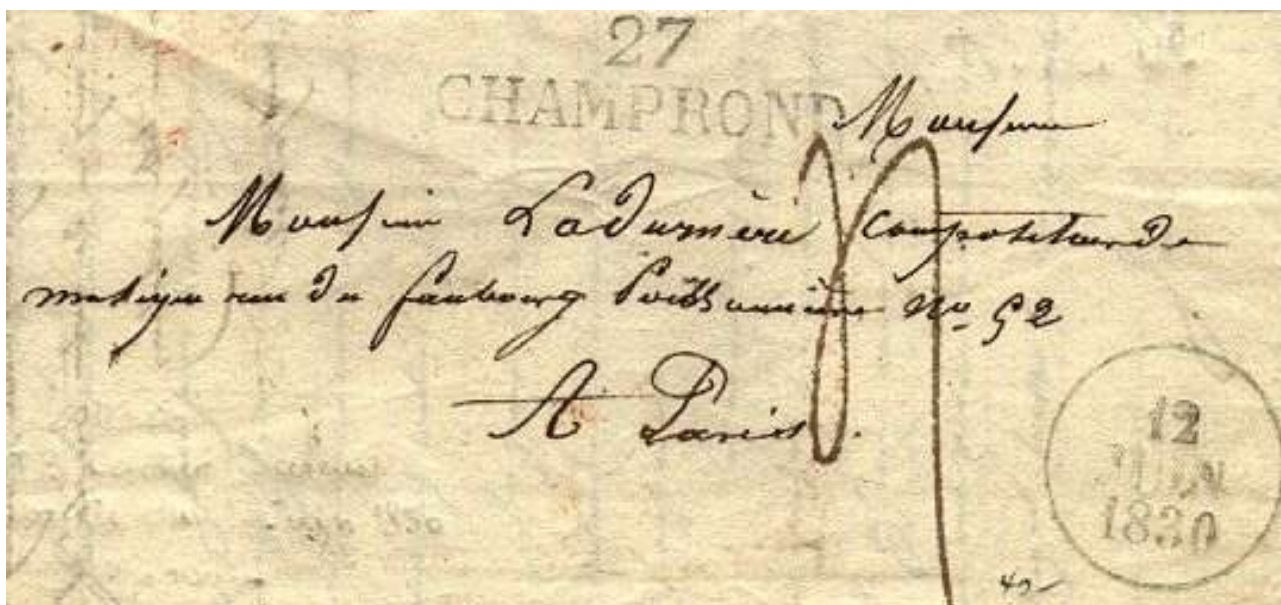 27
CHAMPROND
Monsieur
Monsieur Ladurnère Compositeur de
musique rue du faubourg Poissonnière No 52
A Paris.
12
JUIN
1830